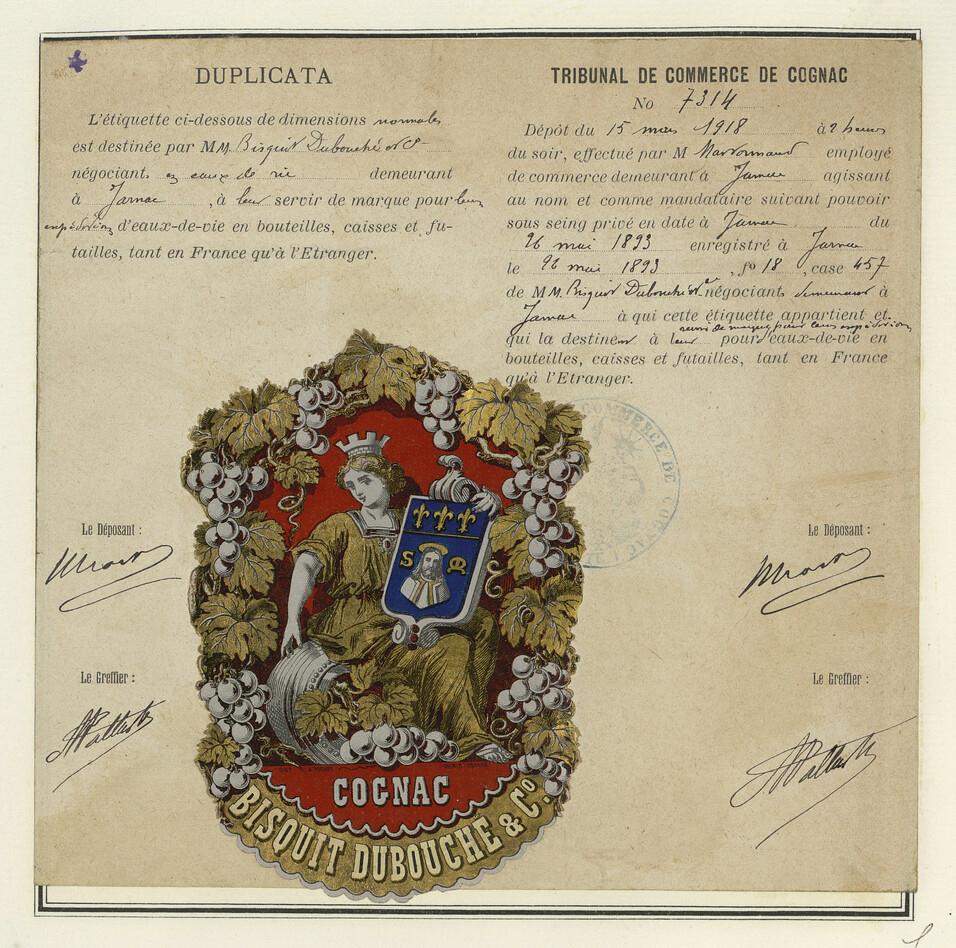 DUPLICATA
L'étiquette ci-dessous de dimensions normales
est destinée par MM. Bisquit Dubouché et Cie
négociants en eaux de vie demeurant
à Jarnac, à leur servir de marque pour leurs
expéditions d'eaux-de-vie en bouteilles, caisses et fu-
tailles, tant en France qu'à l'Etranger.
TRIBUNAL DE COMMERCE DE COGNAC
No 7314
Dépôt du 15 mars 1918 à 2 heures
du soir, effectué par M employé
de commerce demeurant à Jarnac agissant
au nom et comme mandataire suivant pouvoir
sous seing privé en date à Jarnac du
26 mai 1893 enregistré à Jarnac
le 26 mai 1893, fo 18, case 457
de MM. Bisquit Dubouché et Cie négociants demeurant à
Jarnac à qui cette étiquette appartient et
qui la destinent à leur servir de marque pour leurs expéditions d'eaux-de-vie en
bouteilles, caisses et futailles, tant en France
qu'à l'Etranger.
COMMERCE DE COGNAC
Le Déposant :
Le Déposant :
Le Greffier :
Le Greffier :
S M
COGNAC
BISQUIT DUBOUCHE & Co.